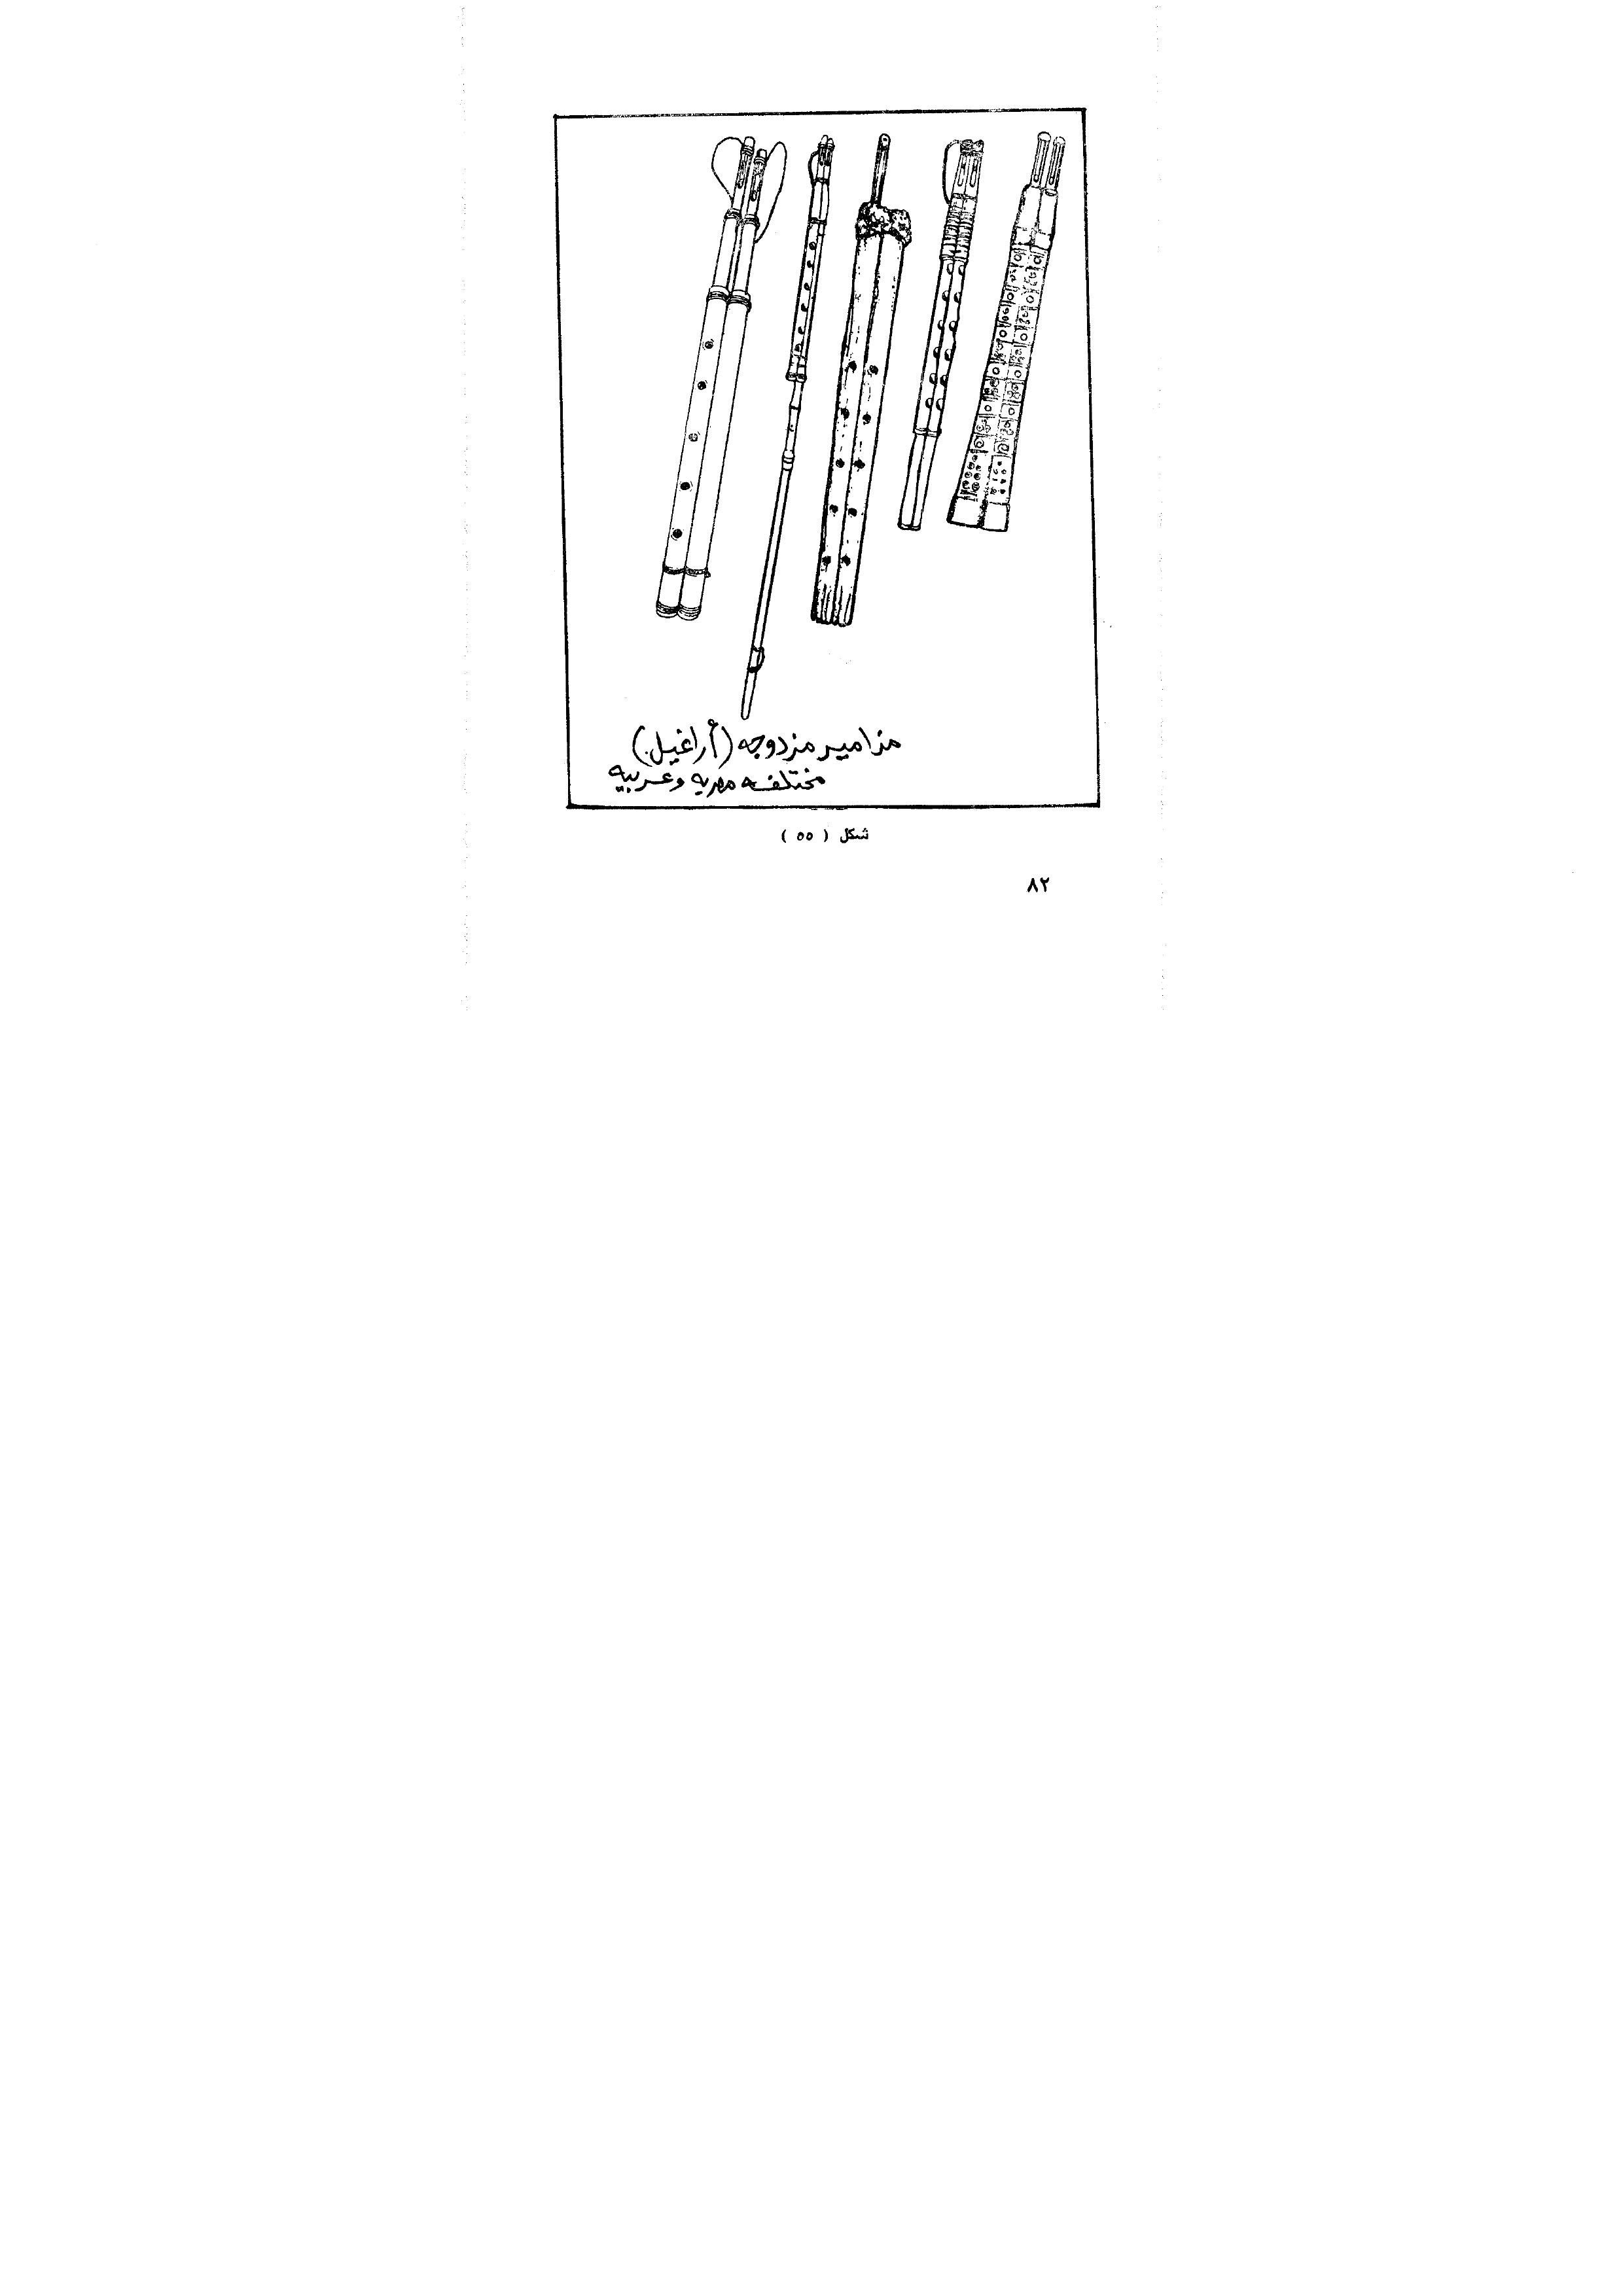 مزامير مزدوجه (أراغيل)
مختلفه مصريه وعربيه
شكل ( ٥٥ )
٨٢